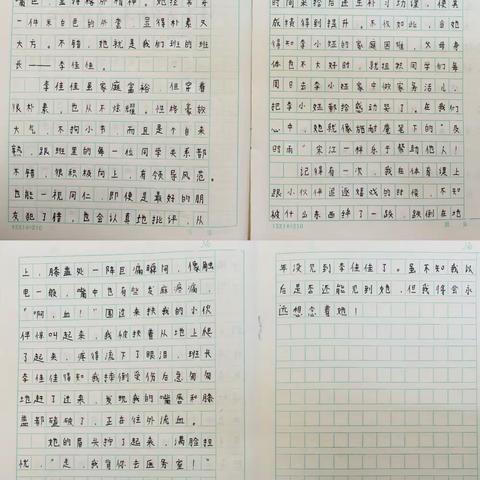 一件米白色的外套，显得朴素又
大方。不错，她就是我们班的班
长——李佳佳。
李佳佳虽家庭富裕，但穿着
很朴素，也从不炫耀。但格豪放
大气，不拘小节，而且是个自来
熟，跟班里的每一位同学关系都
不错，很积极向上，有领导风范。
也能一视同仁，即使是最好的朋
友犯了错，也会认真地批评，从
时间来给后进生补习功课，使其
成绩得到提升。不仅如此，自她
得知李小娅的家庭困难，父母身
体也不大好时，就组织同学们每
周日去李小娅家中做家务活儿，
把李小娅都给感动哭了。在我们
心中，她就像施耐庵笔下的“及
时雨”宋江一样乐于帮助他人！
记得有一次，我在体育课上
跟小伙伴追逐嬉戏的时候，不知
被什么东西绊了一跤，跌倒在地
上，膝盖处一阵巨痛瞬间，像触
电一般，嘴中也有些发麻疼痛，
“啊，血！”围过来扶我的小伙
伴惊叫起来，我被扶着从地上爬
了起来，疼得流下了眼泪，班长
李佳佳得知我摔倒受伤后急匆匆
地赶了过来，发现我的嘴唇和膝
盖都磕破了，正在往外流血。
她的眉头拧了起来，满脸担
忧，“走，我背你去医务室！”
年没见到李佳佳了。虽不知我以
后是否还能见到她，但我将会永
远想念着她！